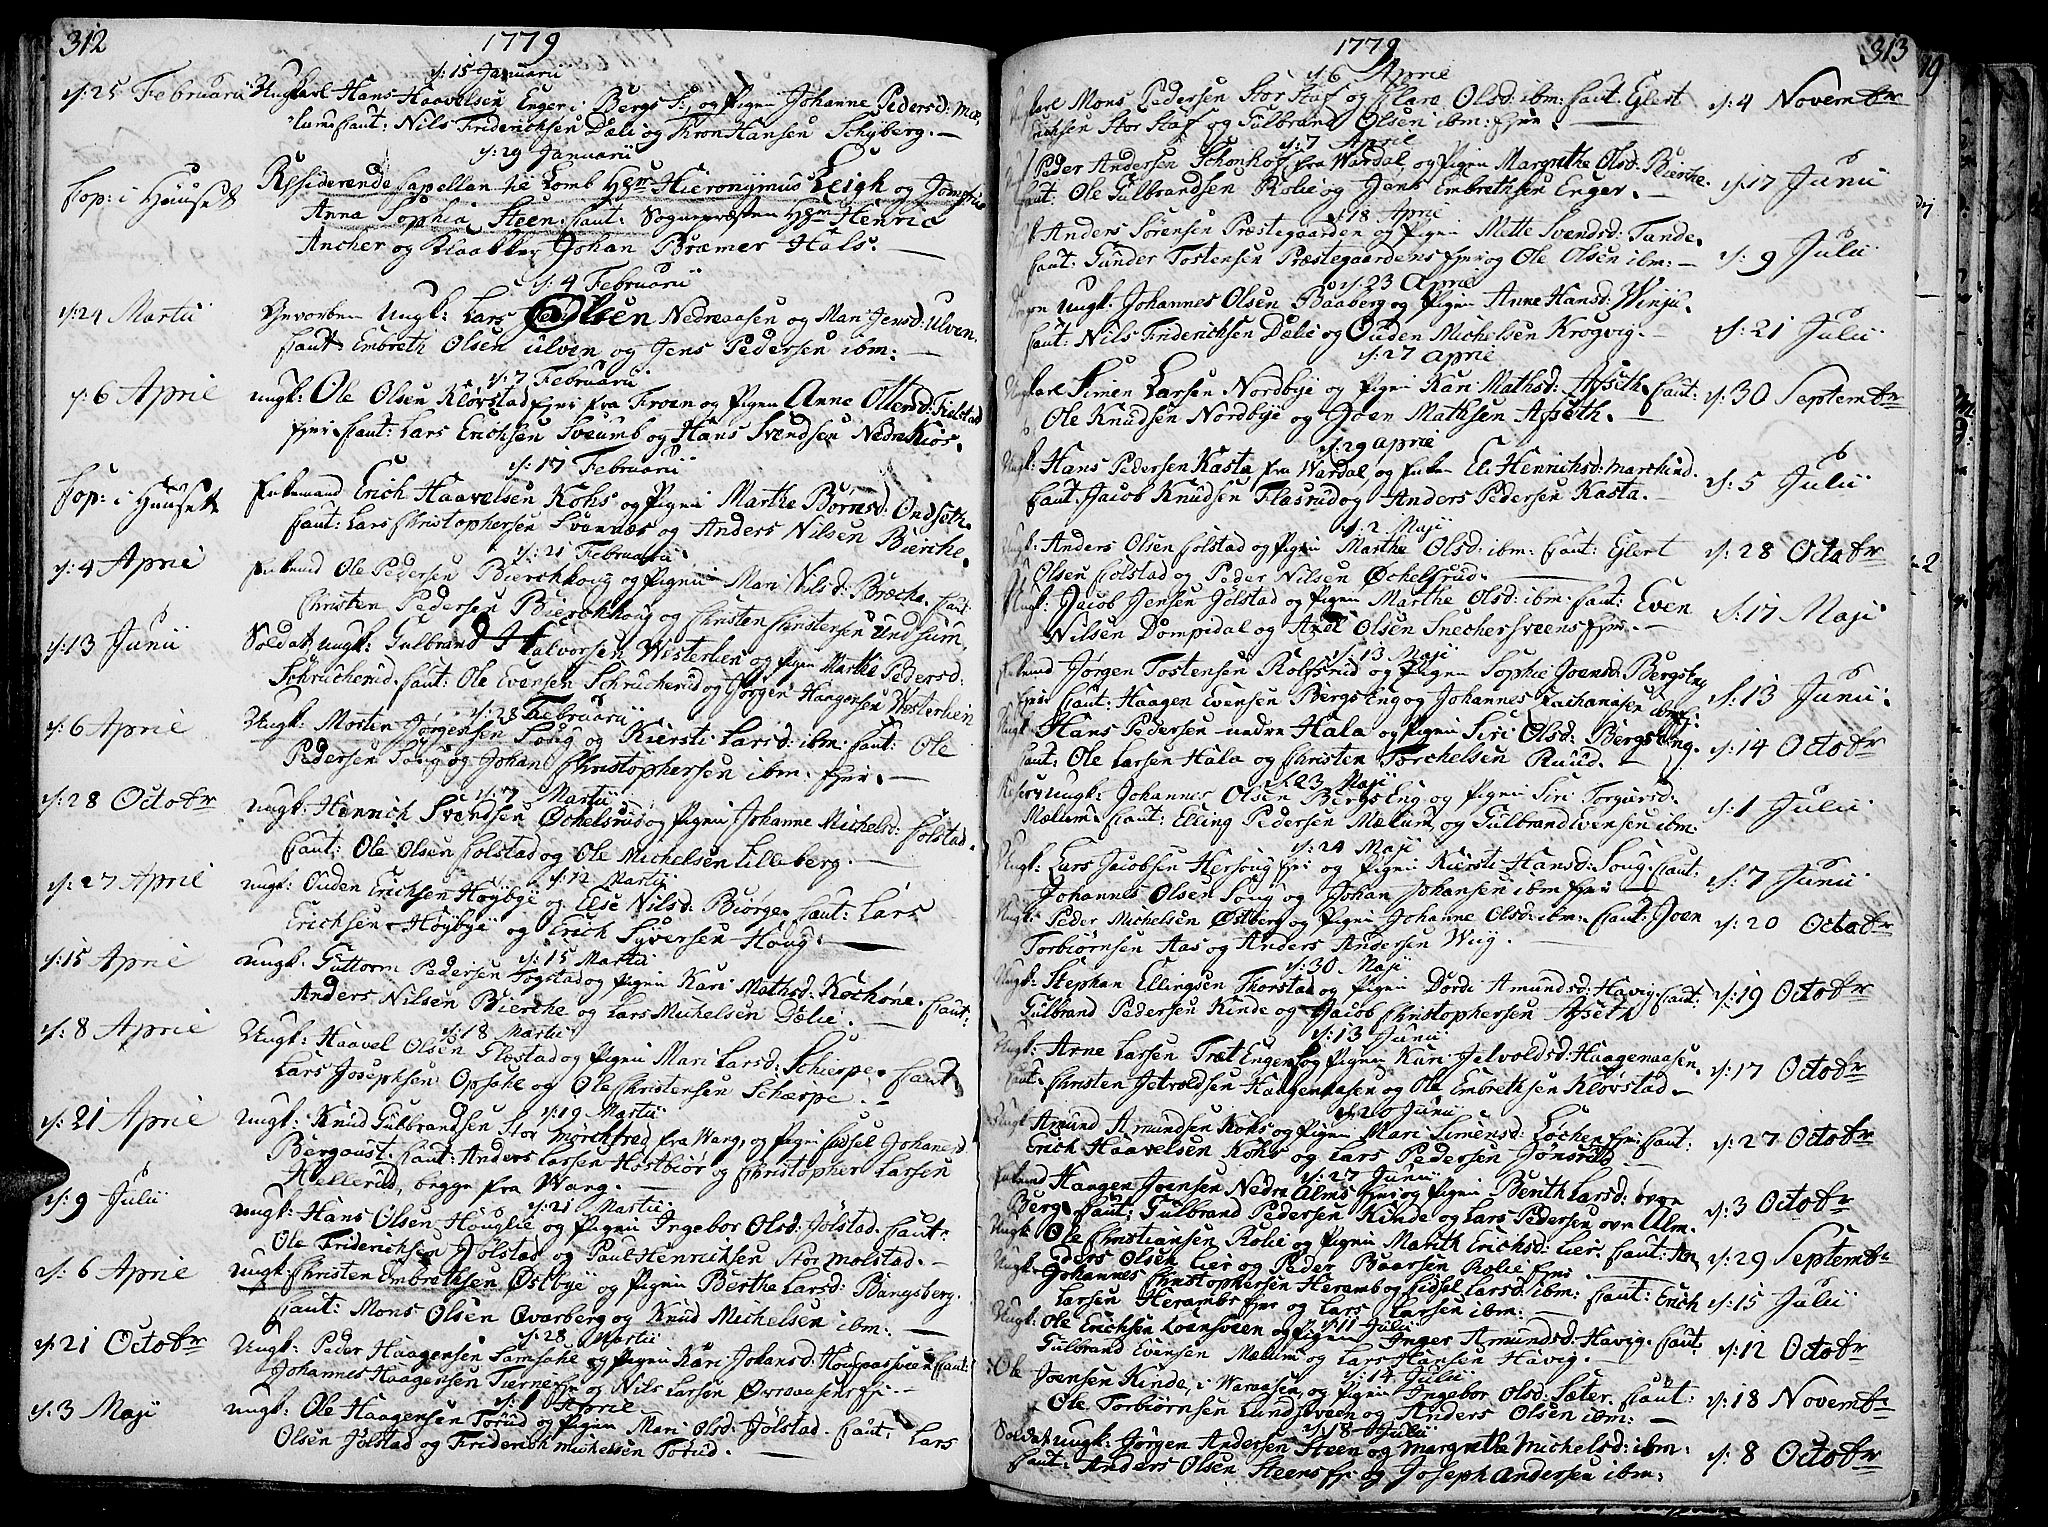 312
1779
d: 15 Januarii
d: 25 Februarii Ungkarl Hans Haavelsen Enger i Bergs S:, og Pigen Johanne Pedersd: Mæ,
lum. Caut: Nils Friderichsen Dæli og Hansen Schÿberg.
d: 29 Januarii
Cop: i Huuset Residerende Capellan til Lomb Hr Hieronÿmus Leigh og Jomfrue
Anna Sophia Steen. Caut: Sognepræsten Hr Henric
Ancher og Klokker Johan Bræmer Hals.
d: 4 Februarii
d: 24 Martii Ungk: Lars Olsen Nedreaasen og Mari Jensd: Ulven.
Caut: Embreth Olsen Ulven og Jens Pedersen ibm:
d: 7 Februarii
d: 6 April Ungk: Ole Olsen Kløvstad Ejer fra Froen og Pigen Anne Ottersd: Fielstad
Ejer. Caut: Lars Erichsen Sveumb og Hans Svendsen Nedre Kiøs.
d: 17 Februarii
Cop: i Huuset Enkemand Erich Haavelsen Kohs og Pigen Marthe Børnsd: Ondseth.
Caut: Lars Christophersen Svennæs og Anders Nilsen Bierche.
d: 21 Februarii
d: 4 April Enkemd Ole Pedersen Bierchhoug og Pigen Mari Nilsd: Bræche. Caut:
Christen Pedersen Bierchhoug og Christen Christensen Undsum,
d: 13 Junii Soldat, Ungk: Gulbrand Halvorsen Westerhen og Pigen Marthe Pedersd:
Schrucherud. Caut: Ole Evensen Schrucherud og Jørgen Haagensen Westerhein
d: 28 Februarii
d: 6 April Ungk: Morten Jørgensen Soug og Kiersti Larsd: ibm: Caut: Ole
Pedersen Soug og Johan Christophersen ibm. Ejer.
d: 7 Martii
d: 28 Octobr Ungk: Henrich Svendsen Øchelsrud og Pigen Johanne Michelsd: Colstad.
Caut: Ole Olsen Colstad og Ole Michelsen Lilleberg.
d: 12 Martii
d: 27 April Ungk: Ouden Erichsen Høÿbÿe og Else Nilsd: Biørge. Caut: Lars
Erichsen Høÿbÿe og Erich Sÿversen Houg.
d: 15 Martii
d: 15 April Ungk: Guttorm Pedersen Fogstad og Pigen Kari Mathsd: Kochøne. Caut:
Anders Nilsen Bierche og Lars Michelsen Dælie.
d: 18 Martii
d: 8 April Ungk: Haavel Olsen Flæstad og Pigen Mari Larsd: Schierpe. Caut:
Lars Josephsen Opsahl og Ole Christensen Schærpe.
d: 19 Martii
d: 21 April Ungk: Knud Gulbrandsen Stor Mørchfred fra Wang, og Pigen Eidsel Johanesd:
Bergoust. Caut: Anders Larsen Høstbiør og Christopher Larsen
Hellerud, begge fra Wang.
d: 21 Martii
d: 9 Julii Ungk: Hans Olsen Houglie og Pigen Ingebor Olsd: Jølstad. Caut:
Ole Friderichsen Jølstad og Paul Henrichsen Stor Molstad.
d: 6 April Ungk: Christen Embrethsen Østbÿe og Pigen Berthe Larsd: Bangsberg.
Caut: Mons Olsen Qvarberg og Knud Michelsen ibm:
d: 28 Martii
d: 21 Octobr Ungk: Peder Haagensen Samsahl og Pigen Kari Johansd: Houspasveen Caut:
Johannes Haagensen Tierne Ejr og Nils Larsen Øvreaasens Ej:
d: 1 April
d: 3 Maji Ungk: Ole Haagensen Torud og Pigen Mari Olsd: Jølstad. Caut: Lars
Olsen Jølstad og Friderich Michelsen Torud.
1779
313
d: 6 April
Ungkarl Mons Pedersen Stor Staf og Clare Olsd: ibm: Caut. Eglert d: 4 Novembr
Erichsen Stor Staf og Gulbrand Olsen ibm: Ejer.
d: 7 April
Peder Andersen Schonhof fra Wardal, og Pigen Margrethe Olsd: Bierche. d: 17 Junii
Caut: Ole Gulbrandsen Rolie og Jens Embrethsen Enger.
d: 18 April
Anders Sørensen Præstegaarden og Pigen Mette Svendsd: Tande. d: 9 Julii
Caut: Gunder Tostensen Præstegaardens Ejer og Ole Olsen ibm:
d: 23 April
Ungk: Johannes Olsen Baaberg og Pigen Anne Hansd: Winju. d: 21 Julii
Caut: Nils Friderichsen Dæli og Ouden Michelsen Krogvig.
d: 27 April
Ungkarl Simen Larsen Nordbÿe og Pigen Kari Mathsd: Asseth. Caut: d: 30 Septembr
Ole Knudsen Nordbÿe og Joen Mathsen Asseth.
d: 29 April
Ungk: Hans Pedersen Kasta fra Wardal og Enken Eli Henrichsd: Marchind. d: 5 Julii
Caut: Jacob Knudsen Flasrud og Anders Pedersen Kasta.
d: 2 Maji
Ungk: Anders Olsen Colstad og Pigen Marthe Olsd: ibm: Caut: Eglert d: 28 Octobr
Olsen Colstad og Peder Nilsen Øchelsrud.
Ungk: Jacob Jensen Jølstad og Pigen Marthe Olsd: ibm: Caut: Even d: 17 Maji
Nilsen Dompidal og Axel Olsen Snechersveens Ejer.
d: 13 Maji
Enkemd Jørgen Tostensen Rolfsrud og Pigen Sophie Joensd: Bergseng d: 13 Junii.
Ejer Caut: Haagen Evensen Bergseng og Johannes Zachariasen ibm:
Ungk: Hans Pedersen nedre Hala og Pigen Siri Olsd: Bergseng. d: 14 Octobr
Caut: Ole Larsen Hala og Christen Torchelsen Ruud.
d: 23 Maji
Ungk: Johannes Olsen Bergseng og Pigen Siri Torgersd: d: 1 Julii
Mælum. Caut: Elling Pedersen Mælum, og Gulbrand Evensen ibm:
d: 24 Maji
Ungk: Lars Jacobsen Hersoug Ejer og Pigen Kiersti Hansd: Soug. Caut: d: 7 Junii
Johannes Olsen Soug og Johan Johansen ibm Ejer
Ungk: Peder Michelsen Østberg og Pigen Johanne Olsd: ibm: Caut: Joen d: 20 Octobr
Torbiørnsen Aas og Anders Andersen Wiig.
d: 30 Maji
Ungk: Stephan Ellingsen Thorstad og Pigen Dordi Amundsd: Havig. Caut: d: 19 Octobr
Gulbrand Pedersen Kinde og Jacob Christophersen Asseth
d: 13 Junii
Ungk: Arne Larsen Træt Engen og Pigen Kari Jetvoldsd: Haagenaasen. d: 17 Octobr
Caut: Christen Jetvoldsen Haagenaasen og Ole Embrethsen Kløvstad.
d: 20 Junii
Ungk: Amund Amundsen Kohs og Pigen Mari Simensd: Løchen Ejer Caut: d: 27 Octobr
Erich Haavelsen Kohs og Lars Pedersen Jønsrud.
d: 27 Junii
Enkemd Haagen Joensen Nedre Alms Ejer og Pigen Berith Larsd: øvre d: 3 Octobr
Berg. Caut: Gulbrand Pedersen Kinde og Lars Pedersen øvre Alm.
Ungk: Ole Christiansen Rolie og Pigen Marith Erichsd: Lier. Caut: An, d: 29 Septembr
ders Olsen Lier og Peder Baarsen Rolie Ejer.
Ungk: Johannes Christophersen Heramb og Eidsel Larsd: ibm: Caut: Erich d: 15 Julii
Larsen Herambs Ejer og Lars Larsen ibm:
d: 11 Julii
Ungk: Ole Erichsen Loensveen og Pigen Inger Amundsd: Havig. Caut. d: 12 Octobr
Gulbrand Evensen Mælum og Lars Hansen Havig.
d: 14 Julii
Ole Joensen Kinde, i Waraasen, og Pigen Ingebor Olsd: Sæter. Caut: d: 18 Novembr
Ole Torbiørnsen Lundsveen og Anders Olsen ibm:
d: 18 Julii
Soldat, Ungk: Jørgen Andersen Steen og Margrethe Michelsd: ibm: d: 8 Octobr
Caut: Anders Olsen Steens Ejr og Joseph Andersen ibm: